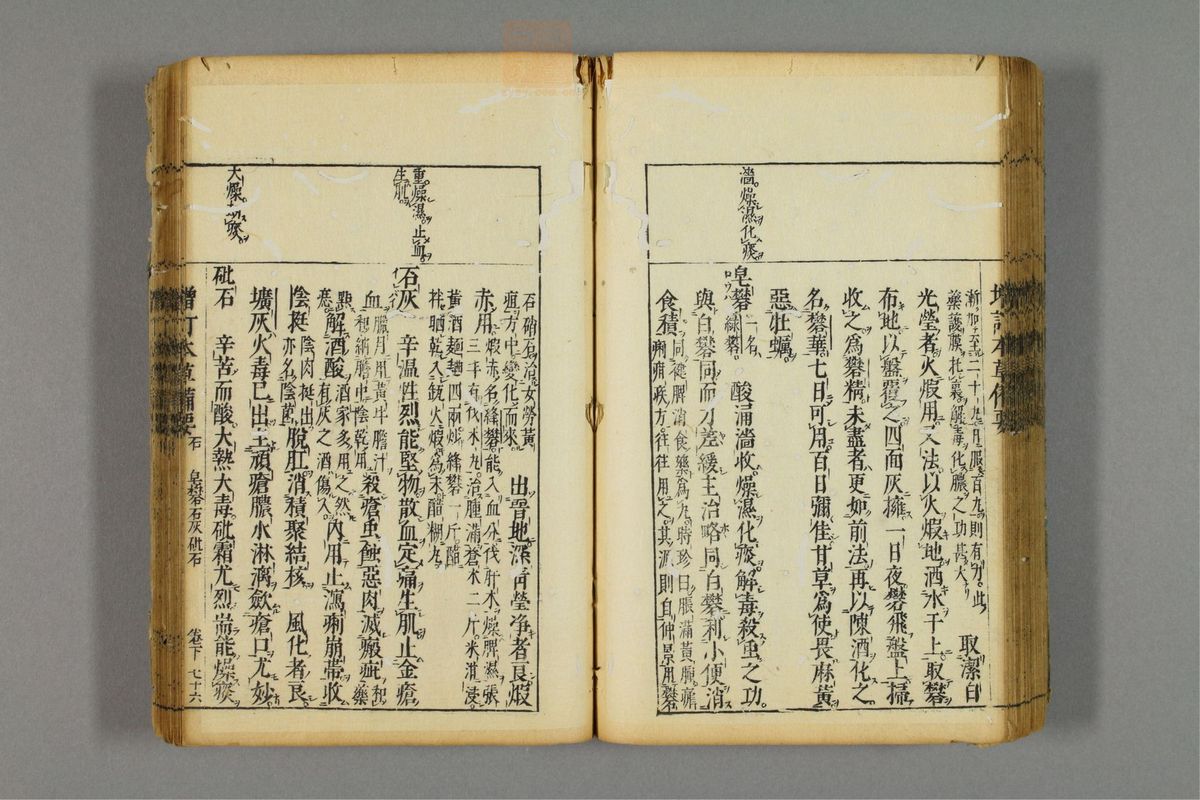 濇燥濕化痰
漸加至二十九月服百丸則有力此
藥護膜托裏解毒化膿之功甚大
取潔白
光瑩者火煅用又法以火煅地洒水于上取礬
布地以盤覆之四面灰擁一日夜礬飛盤上掃
收之為礬精未盡者更如前法再以陳酒化之
名礬華七日可用百日彌佳甘草為使畏麻黃
惡牡蠣
皂礬 一名綠礬 酸涌濇收燥濕化痰解毒殺虫之功
與白礬同而力差緩主治略同白礬利小便消
食積 同健脾消食藥為丸時珍曰脹滿黃腫瘧
痢疳疾方往往用之其源則自仲景用礬
增訂本草備要
重燥濕止血
生肌
大燥劫痰
石硝石治女勞黃
疸方中變化而來
出晋地深青瑩净者良煅
赤用 煅赤名絳礬能入血分伐肝木燥脾濕張
三丰有伐木丸治腫滿蒼木二斤米泔浸
黃酒麵麯四兩炒絳礬一斤醋
拌晒乾入瓶火煅為末醋糊丸
石灰 辛溫性烈能堅物散血定痛生肌止金瘡
血 臘月用黃牛膽汁
和納膽中陰乾用
殺瘡虫蝕惡肉滅瘢疵 和藥
點痣
解酒酸 酒家多用之然
有灰之酒傷人
內用止瀉痢崩帶收
陰挺 陰肉挺出
亦名陰菌
脫肛消積聚結核 風化者良
壙灰火毒已出主頑瘡膿水淋漓斂瘡口尤妙
砒石 辛苦而酸大熱大毒砒霜尤烈耑能燥痰
增訂本草備要 石 皂礬石灰砒石 卷下 七十六